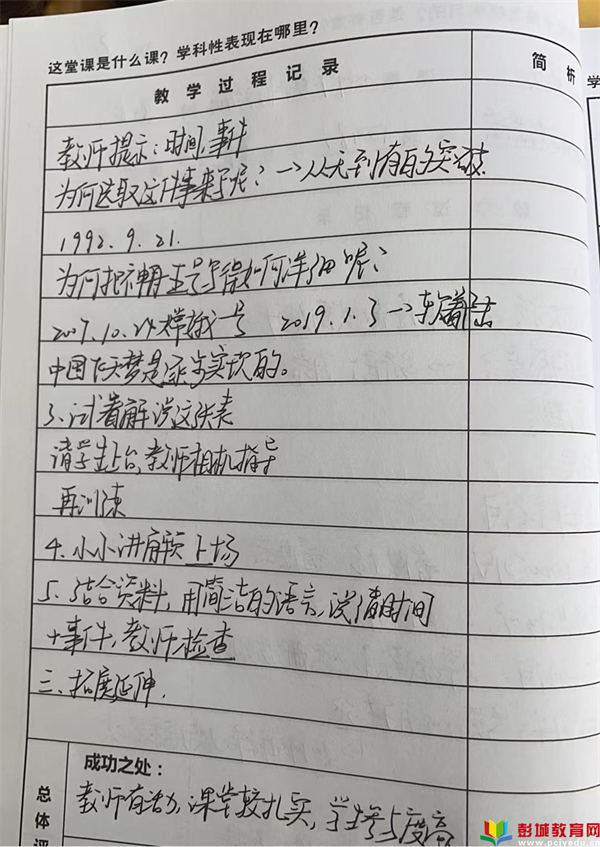 这堂课是什么课？学科性表现在哪里？
教 学 过 程 记 录
简 析
学
教师提示：时间，事件
为何选取这件事来写呢？→从无到有的突破
1992.9.21.
为何把神舟五号写得如何详细呢？
2007.10.24嫦娥一号 2019.1.3→软着陆
中国飞天梦是逐步实现的。
3、试着解说这张表
请学生上台，教师相机指导
再训练
4.小小讲解员上场
5、结合资料，用简洁的语言，说清时间
+事件，教师检查
三、拓展延伸.
总体评
成功之处：
教师有活力，课堂较扎实，学生参与度高
彭城教育网
www.pcjyedu.cn